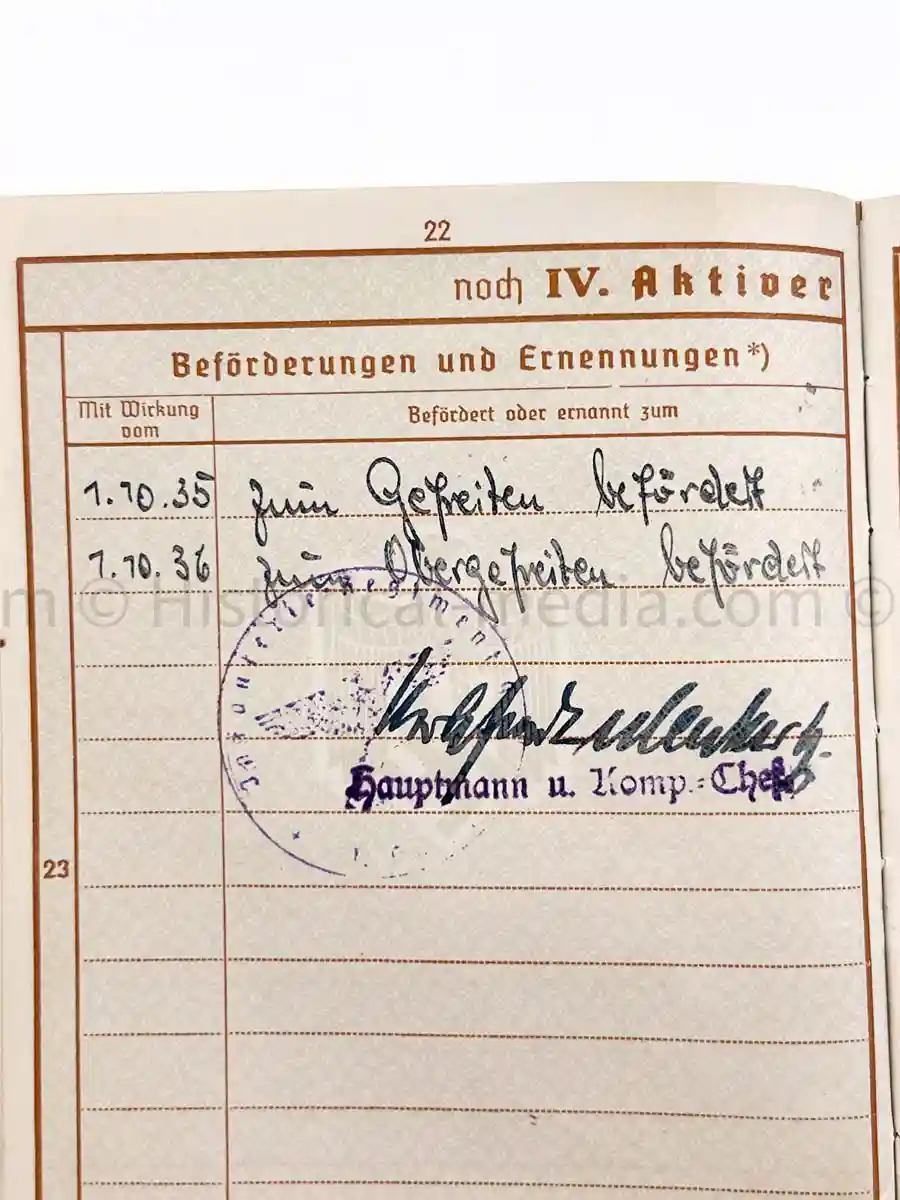 22
noch IV. Aktiver
Beförderungen und Ernennungen*)
Mit Wirkung vom
Befördert oder ernannt zum
1.10.35 zum Gefreiten befördert
1.10.36 zum Obergefreiten befördert
© Historical-media.com ©
Infanterieregiment
Hauptmann u. Komp.-Chef
23